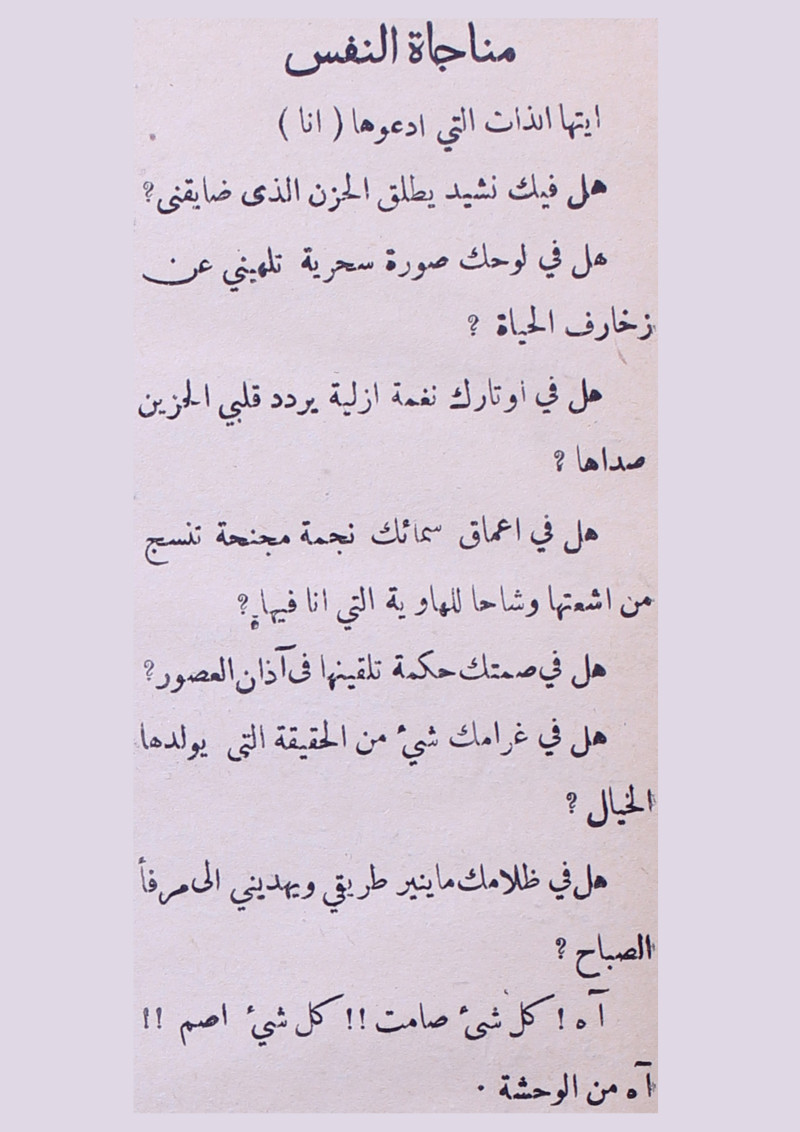 مناجاة النفس
ايتها الذات التي ادعوها ( انا )
هل فيك نشيد يطلق الحزن الذى ضايقنى ؟
هل في لوحك صورة سحرية تلهيني عن
زخارف الحياة ؟
هل في اوتارك نغمة ازلية يردد قلبي الحزين
صداها ؟
هل في اعماق سمائك نجمة مجنحة تنسج
من اشعتها وشاحا للهاوية التي انا فيها ؟
هل في صمتك حكمة تلقينها فى آذان العصور ؟
هل في غرامك شيء من الحقيقة التى يولدها
الخيال ؟
هل في ظلامك ماينير طريقي ويهديني الى مرفأ
الصباح ؟
آه ! كل شىء صامت !! كل شيء اصم !!
آه من الوحشة .